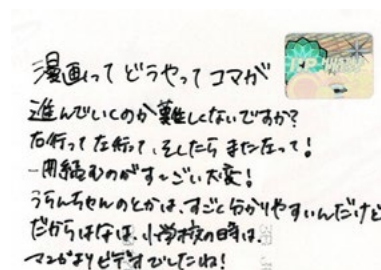 漫画って どうやって コマが
進んでいくのか難しくないですか?
右行って左行って、そしたら また左って!
一冊読むのがすっごい大変!
うらんちゃんのとかは、すごく分かりやすいんだけど
だからはなは、小学校の時は、
マンガよりビデオでしたね!